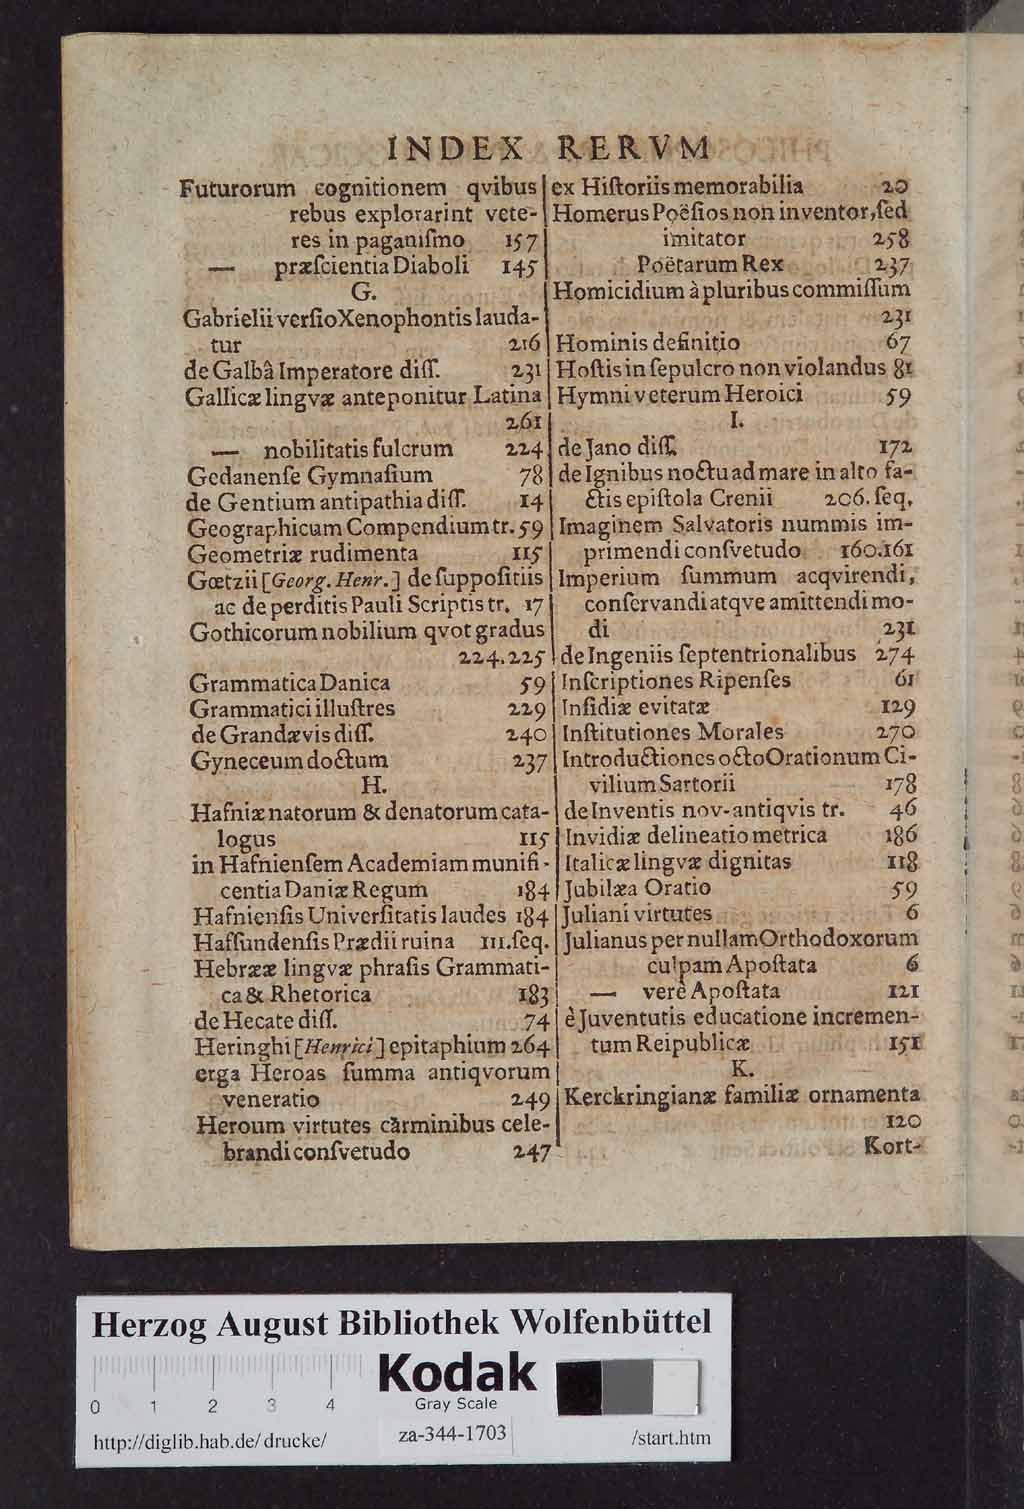 INDEX RERVM
Futurorum cognitionem qvibus
rebus explorarint vete-
res in paganiſmo 157
— præſcientia Diaboli 145
G.
Gabrielii verſio Xenophontis lauda-
tur 216
de Galbâ Imperatore diſſ. 231
Gallicæ lingvæ anteponitur Latina
261
— nobilitatis fulcrum 224
Gedanenſe Gymnaſium 78
de Gentium antipathia diſſ. 14
Geographicum Compendium tr. 59
Geometriæ rudimenta 115
Gœtzii [Georg. Henr.] de ſuppoſitiis
ac de perditis Pauli Scriptis tr. 17
Gothicorum nobilium qvot gradus
224.225
Grammatica Danica 59
Grammatici illuſtres 229
de Grandævis diſſ. 240
Gyneceum doctum 237
H.
Hafniæ natorum & denatorum cata-
logus 115
in Hafnienſem Academiam munifi-
centia Daniæ Regum 184
Hafnienſis Univerſitatis laudes 184
Haffundenſis Prædii ruina 111.ſeq.
Hebrææ lingvæ phraſis Grammati-
ca & Rhetorica 183
de Hecate diſſ. 74
Heringhi [Henrici] epitaphium 264
erga Heroas ſumma antiqvorum
veneratio 249
Heroum virtutes carminibus cele-
brandi conſvetudo 247
ex Hiſtoriis memorabilia 20
Homerus Poëſios non inventor, ſed
imitator 258
Poëtarum Rex 237
Homicidium à pluribus commiſſum
231
Hominis definitio 67
Hoſtis in ſepulcro non violandus 81
Hymni veterum Heroici 59
I.
de Jano diſſ. 172
de Ignibus noctu ad mare in alto fa-
ctis epiſtola Crenii 206. ſeq.
Imaginem Salvatoris nummis im-
primendi conſvetudo 160.161
Imperium ſummum acqvirendi,
conſervandi atqve amittendi mo-
di 231
de Ingeniis ſeptentrionalibus 274
Inſcriptiones Ripenſes 61
Inſidiæ evitatæ 129
Inſtitutiones Morales 270
Introductiones octo Orationum Ci-
vilium Sartorii 178
de Inventis nov-antiqvis tr. 46
Invidiæ delineatio metrica 186
Italicæ lingvæ dignitas 118
Jubilæa Oratio 59
Juliani virtutes 6
Julianus per nullam Orthodoxorum
culpam Apoſtata 6
— verè Apoſtata 121
è Juventutis educatione incremen-
tum Reipublicæ 151
K.
Kerckringianæ familiæ ornamenta
120
Kort-
Herzog August Bibliothek Wolfenbüttel
Kodak
Gray Scale
0 1 2 3 4
http://diglib.hab.de/drucke/ za-344-1703 /start.htm